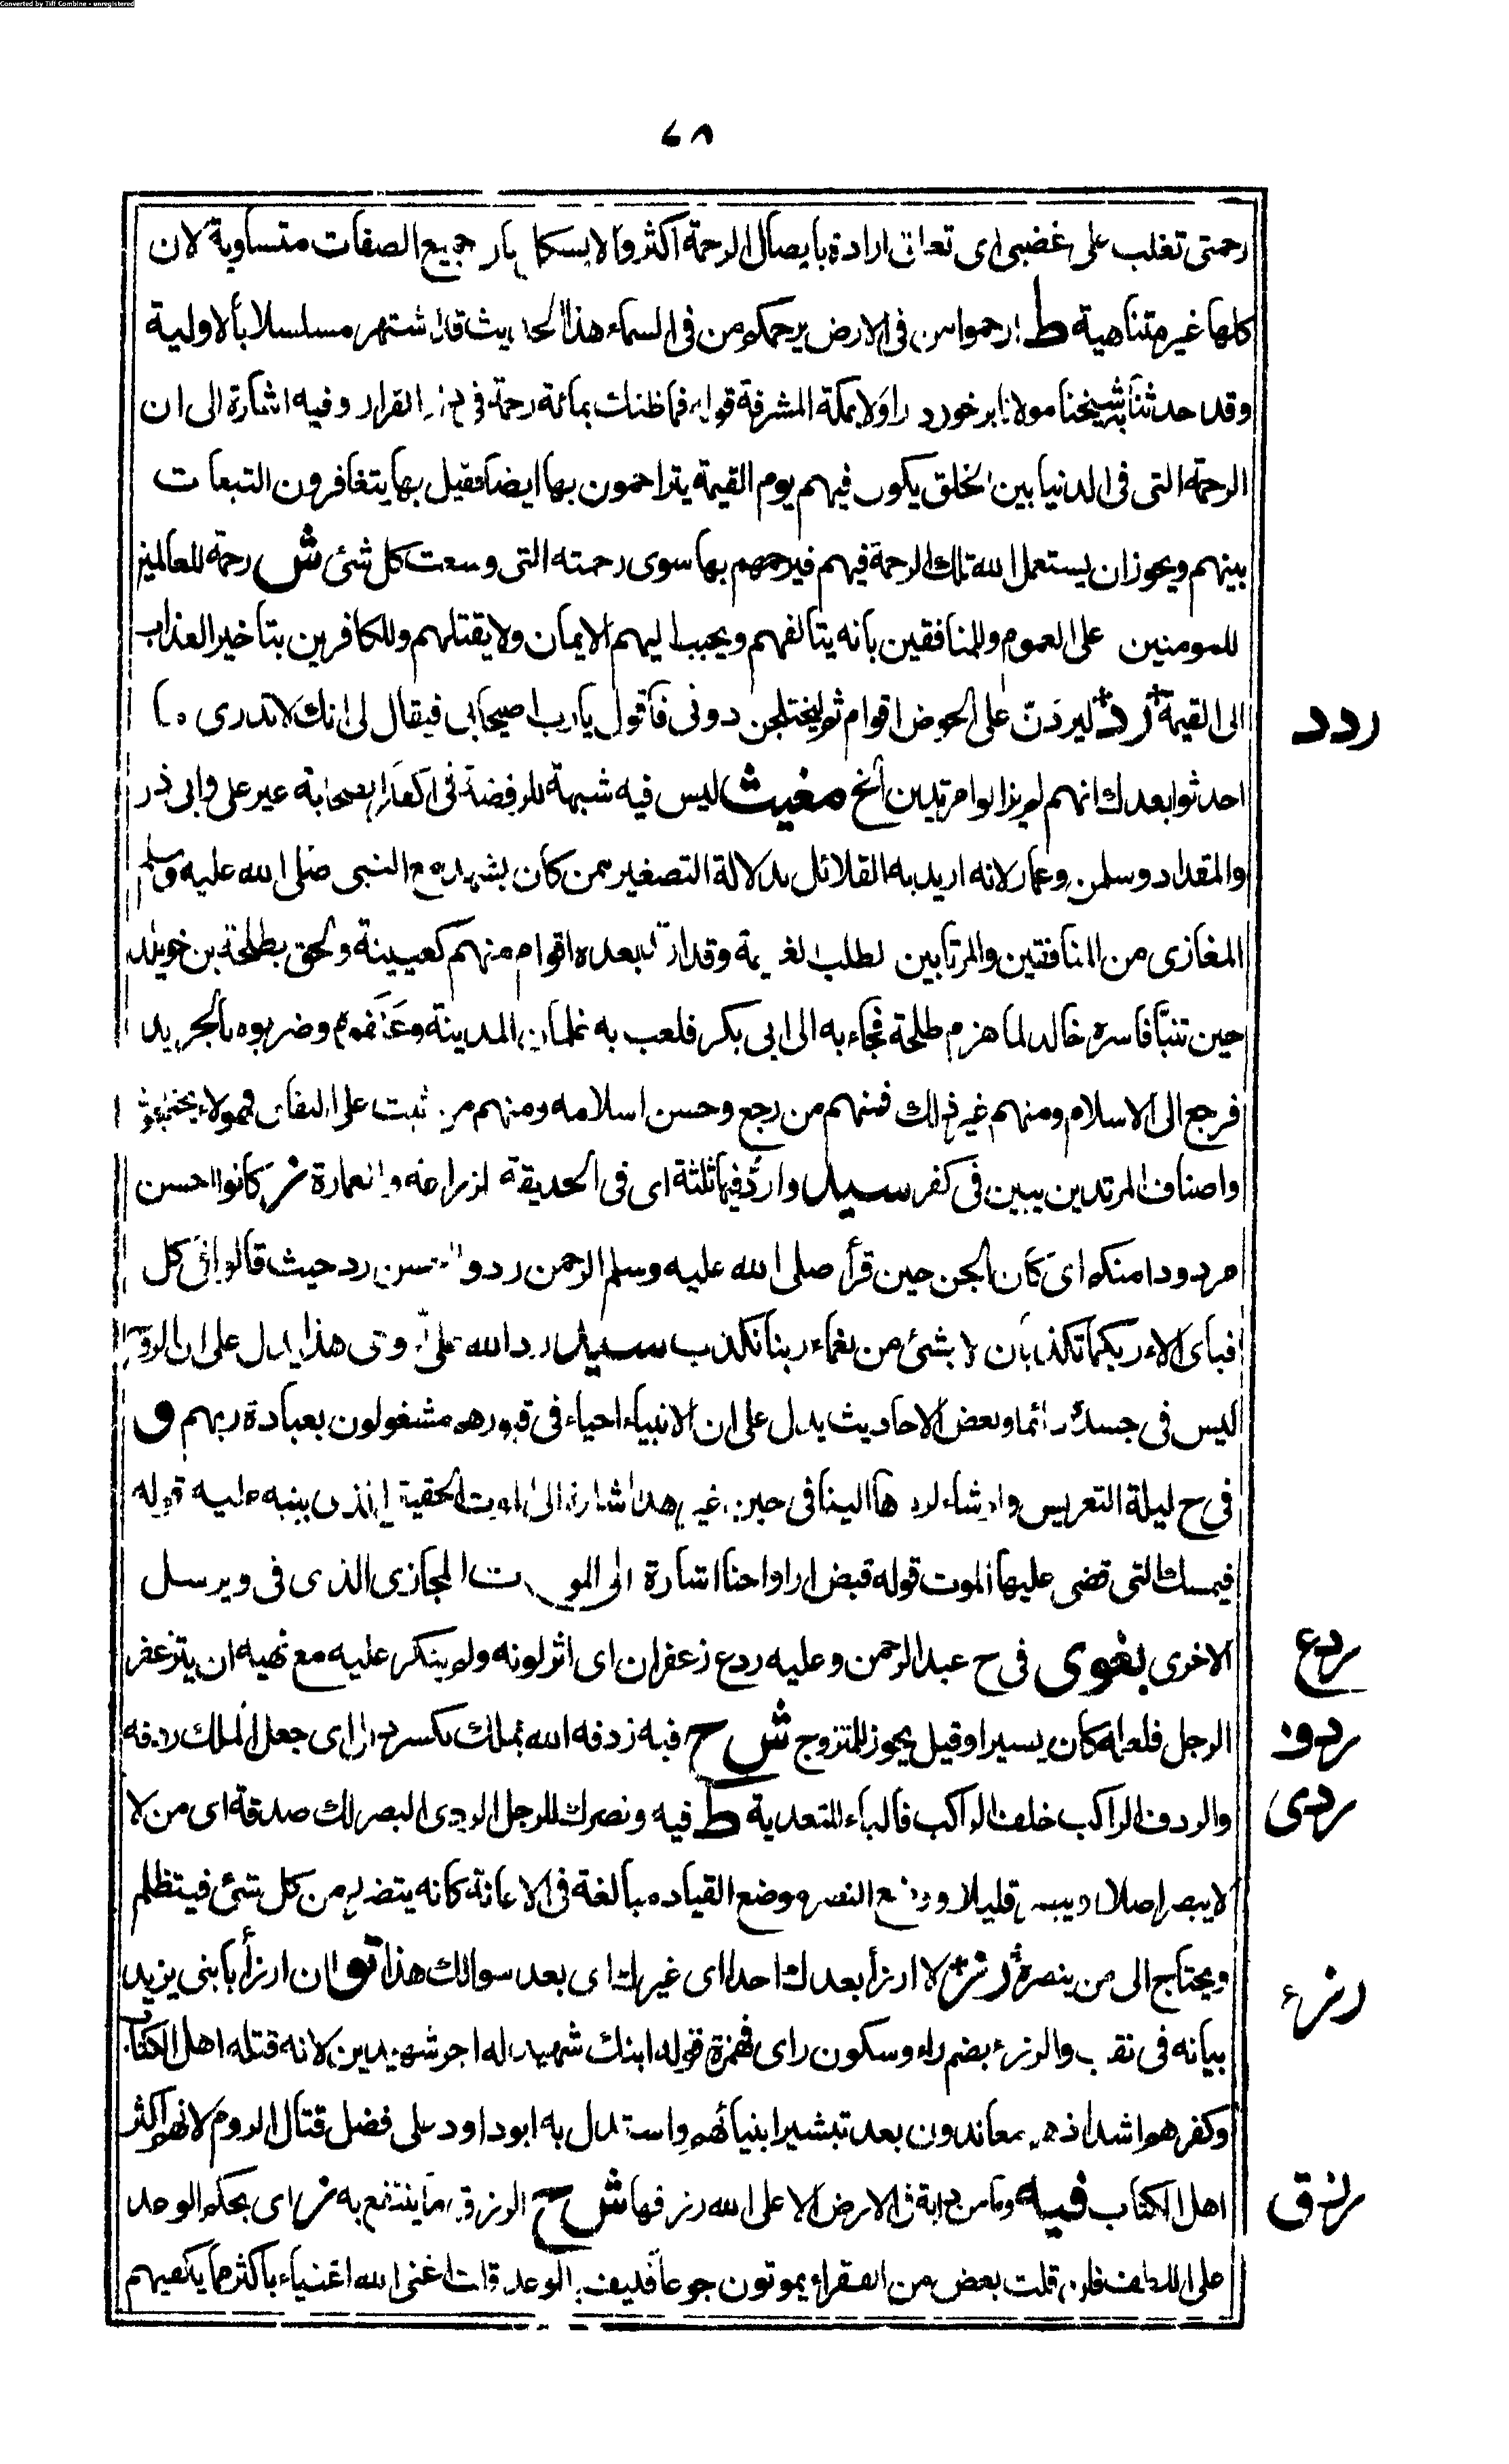 Converted by Tiff Combine - unregistered
٦٨
رحمتى تغلب على غضبى اى تعلق ارادة بايصال الرحمة اكثر والا يشكل بان جميع الصفات متساوية لان
كلها غير متناهية ط ارحموا من فى الارض يرحمكم من فى السماء هذا الحديث قد اشتهر مسلسلا بالاولية
وقد حدثنا شيخنا مولانا برخوردار اولا بمكة المشرفة قوله فما ظنك بمائة رحمة فى دار القرار وفيه اشارة الى ان
الرحمة التى فى الدنيا بين الخلق يكون فيهم يوم القيمة يتراحمون بها ايضا فقيل بها يتغافرون التبعات
بينهم ويجوز ان يستعمل الله تلك الرحمة فيهم فيرحمهم بها سوى رحمته التى وسعت كل شئ ش رحمة للعالمين
للمومنين على العموم وللمنافقين بانه يتالفهم ويحبب اليهم الايمان ولا يقتلهم وللكافرين بتاخير العذاب
الى القيمة رد ليردن على الحوض اقوام ثم ليختلجن دونى فاقول يارب اصيحابى فيقال لى انك لا تدرى ما
ردد
احدثوا بعدك انهم لم يزالوا مرتدين الخ مغيث ليس فيه شبهة للرفضة فى اكفار الصحابة غير على وابى ذر
والمقداد وسلمن وعمار لانه اريد به القلائل بدلالة التصغير ممن كان يشهد مع النبى صلى الله عليه وسلم
المغازى من المنافقين والمرتابين لطلب الغنيمة وقد ارتد بعده اقوام منهم كعيينة ولحق بطلحة بن خويلد
حين تنبأ فاسره خالد لما هزم طلحة فجاء به الى ابى بكر فلعب به غلمان المدينة وعنفوه وضربوه بالجريد
فرجع الى الاسلام ومنهم غير ذلك فمنهم من رجع وحسن اسلامه ومنهم من ثبت على النفاق فهؤلاء
واصناف المرتدين يبين فى كفر سيد وارد فيها ثلثة اى فى الحديقة لزراعه والعمارة ز كانوا احسن
مردودا منكم اى كان الجن حين قرأ صلى الله عليه وسلم الرحمن ردوا احسن رد حيث قالوا فى كل
فباى الاء ربكما تكذبان لا بشئ من نعماء ربنا نكذب سيد رد الله على روحى هذا يدل على ان الروح
ليس فى جسده دائما وبعض الاحاديث يدل على ان الانبياء احياء فى قبورهم مشغولون بعبادة ربهم و
فى ح ليلة التعريس ولو شاء لردها الينا فى حين غير هذا اشارة الى الموت الحقيقة الذى ينبه عليه قوله
فيمسك التى قضى عليها الموت قوله قبض ارواحنا اشارة الى الموت المجازى الذى فى ويرسل
الاخرى بغوى فى ح عبد الرحمن وعليه ردع زعفران اى اثر لونه ولم ينكر عليه مع نهيه ان يتزعفر
ردع
الرجل فلعله كان يسيرا وقيل يجوز للمتزوج ش ح فيه ردفه الله بملك بكسر دال اى جعل الملك ردفه
ردف
والردف الراكب خلف الراكب فالباء للتعدية ط فيه ونصرك للرجل الردى البصر لك صدقة اى من لا
ردى
لا يبصر اصلا او يبصر قليلا ووضع النصر موضع القياد مبالغة فى الاعانة كانه يتضرر من كل شئ فيتظلم
ويحتاج الى من ينصره رز لا ارزأ بعدك احدا اى غيرك اى بعد سوالك هذا تو ان ارزأ بابنى يزيد
رزء
بيانه فى نقب والرزء بضم راء وسكون زاى فهمزة قوله ابنك شهيد له اجر شهيدين لانه قتله اهل الكتاب
وكفرهم اشد اذ هم معاندون بعد تبشير ابنيائهم واستدل به ابو داود على فضل قتال الروم لانهم اكثر
اهل الكتاب فيه وما من دابة فى الارض الا على الله رزقها ش ح الرزق ما ينتفع به ز اى بحكم الوعد
رزق
على اللطف فان قلت بعض من الفقراء يموتون جوعا فكيف الوعد قلت اغنى الله اغنياء باكثر مما يكفيهم